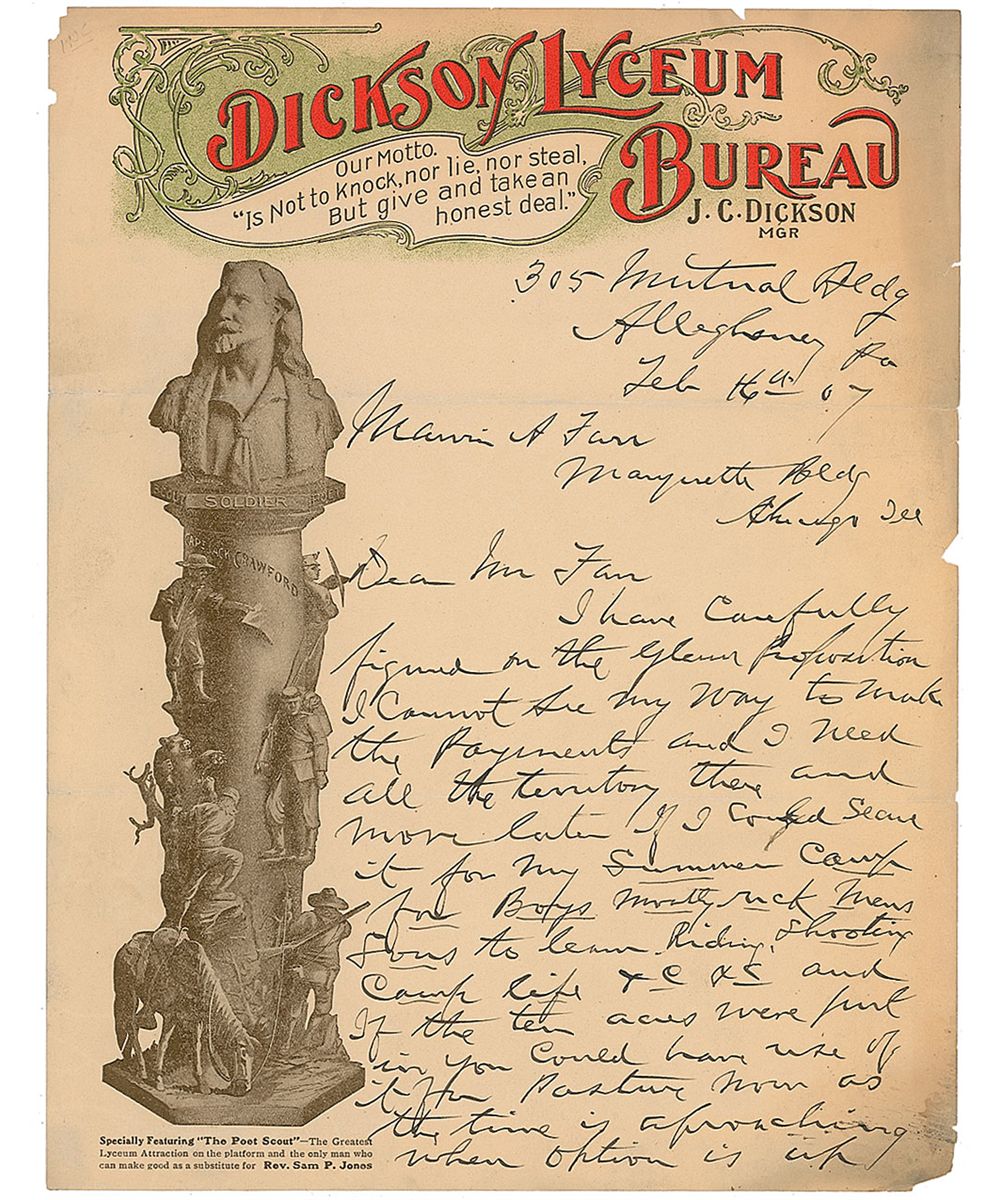 DICKSON LYCEUM
BUREAU
J. C. DICKSON
MGR
Our Motto.
"Is Not to Knock, nor lie, nor steal,
But give and take an
honest deal."
305 Mutual Bldg
Allegheney Pa
Feb 16th 07
Marvin A Farr
Marquette Bldg
Chicago Ill
Dear Mr Farr
I have Carefully
figured on the Proposition
I Cannot See my Way to Make
the Payments and I Need
all the territory there and
more later If I Could Secure
it for My Summer Camp
for Boys Mostly rich Mens
Sons to learn Riding, Shooting
Camp life & C & S and
If the ten acres were put
in you Could have use of
it for Pasture Now as
the time is aproaching
when option is up
SOLDIER
CAPT JACK CRAWFORD
Specially Featuring "The Poet Scout"—The Greatest
Lyceum Attraction on the platform and the only man who
can make good as a substitute for Rev. Sam P. Jones